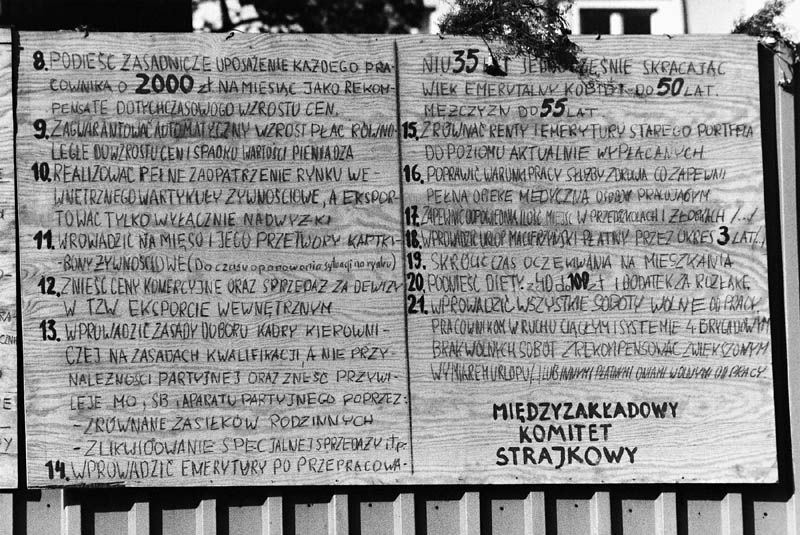 8. PODIEŚĆ ZASADNICZE UPOSAŻENIE KAŻDEGO PRA-
COWNIKA O 2000 zł NA MIESIĄC JAKO REKOM-
PENSATĘ DOTYCHCZASOWEGO WZROSTU CEN.
9. ZAGWARANTOWAĆ AUTOMATYCZNY WZROST PŁAC RÓWNO-
LEGLE DO WZROSTU CEN I SPADKU WARTOŚCI PIENIĄDZA
10. REALIZOWAĆ PEŁNE ZAOPATRZENIE RYNKU WE-
WNĘTRZNEGO W ARTYKUŁY ŻYWNOŚCIOWE, A EKSPOR-
TOWAĆ TYLKO WYŁĄCZNIE NADWYŻKI
11. WROWADZIĆ NA MIĘSO I JEGO PRZETWORY KARTKI-
BONY ŻYWNOŚCIOWE (Do czasu opanowania sytuacji na rynku)
12. ZNIEŚĆ CENY KOMERCYJNE ORAZ SPRZEDAŻ ZA DEWIZY
W TZW. EKSPORCIE WEWNĘTRZNYM
13. WPROWADZIĆ ZASADY DOBORU KADRY KIEROWNI-
CZEJ NA ZASADACH KWALIFIKACJI, A NIE PRZY-
NALEŻNOŚCI PARTYJNEJ ORAZ ZNEŚĆ PRZYWI-
LEJE MO, SB I APARATU PARTYJNEGO POPRZEZ:
- ZRÓWNANE ZASIŁKÓW RODZINNYCH
- ZLIKWIDOWANIE SPECJALNEJ SPRZEDAŻY itp.
14. WPROWADZIĆ EMERYTURY PO PRZEPRACOWA-
NIU 35 LAT JEDNOCZEŚNIE SKRACAJĄC
WIEK EMERYTALNY KOBIET DO 50 LAT.
MĘŻCZYZN DO 55 LAT
15. ZRÓWNAĆ RENTY I EMERYTURY STAREGO PORTFELA
DO POZIOMU AKTUALNIE WYPŁACANYCH
16. POPRAWIĆ WARUNKI PRACY SŁUŻBY ZDROWIA CO ZAPEWNI
PEŁNĄ OPIEKĘ MEDYCZNĄ OSOBOM PRACUJĄCYM
17. ZAPEWNIĆ ODPOWIEDNIĄ ILOŚĆ MIEJSC W PRZEDSZKOLACH I ŻŁOBKACH /.../
18. WPROWADZIĆ URLOP MACIERZYŃSKI PŁATNY PRZEZ OKRES 3 LAT /.../
19. SKRÓCIĆ CZAS OCZEKIWANIA NA MIESZKANIA
20. PODNIEŚĆ DIETY z 40 do 100 zł I DODATEK ZA ROZŁĄKĘ
21. WPROWADZIĆ WSZYSTKIE SOBOTY WOLNE OD PRACY
PRACOWNIKOM W RUCHU CIĄGŁYM I SYSTEMIE 4 BRYGADOWYM
BRAK WOLNYCH SOBÓT ZREKOMPENSOWAĆ ZWIĘKSZONYM
WYMIAREM URLOPU / LUB INNYMI PŁATNYMI DNIAMI WOLNYMI OD PRACY
MIĘDZYZAKŁADOWY
KOMITET
STRAJKOWY